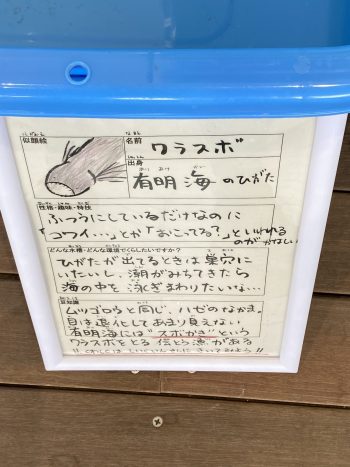 似顔絵
名前 ワラスボ
出身
有明海のひがた
性格・趣味・特技
ふつうにしているだけなのに
「コワイ…」とか「おこってる?」といわれる
のがかなしい
どんな水槽・どんな環境でくらしたいですか?
ひがたが出てるときは巣穴に
いたいし、潮がみちてきたら
海の中を泳ぎまわりたいな…
豆知識
ムツゴロウと同じ、ハゼのなかま。
目は退化してあまり見えない
有明海には"スボかき"という
ワラスボをとる伝とう漁がある